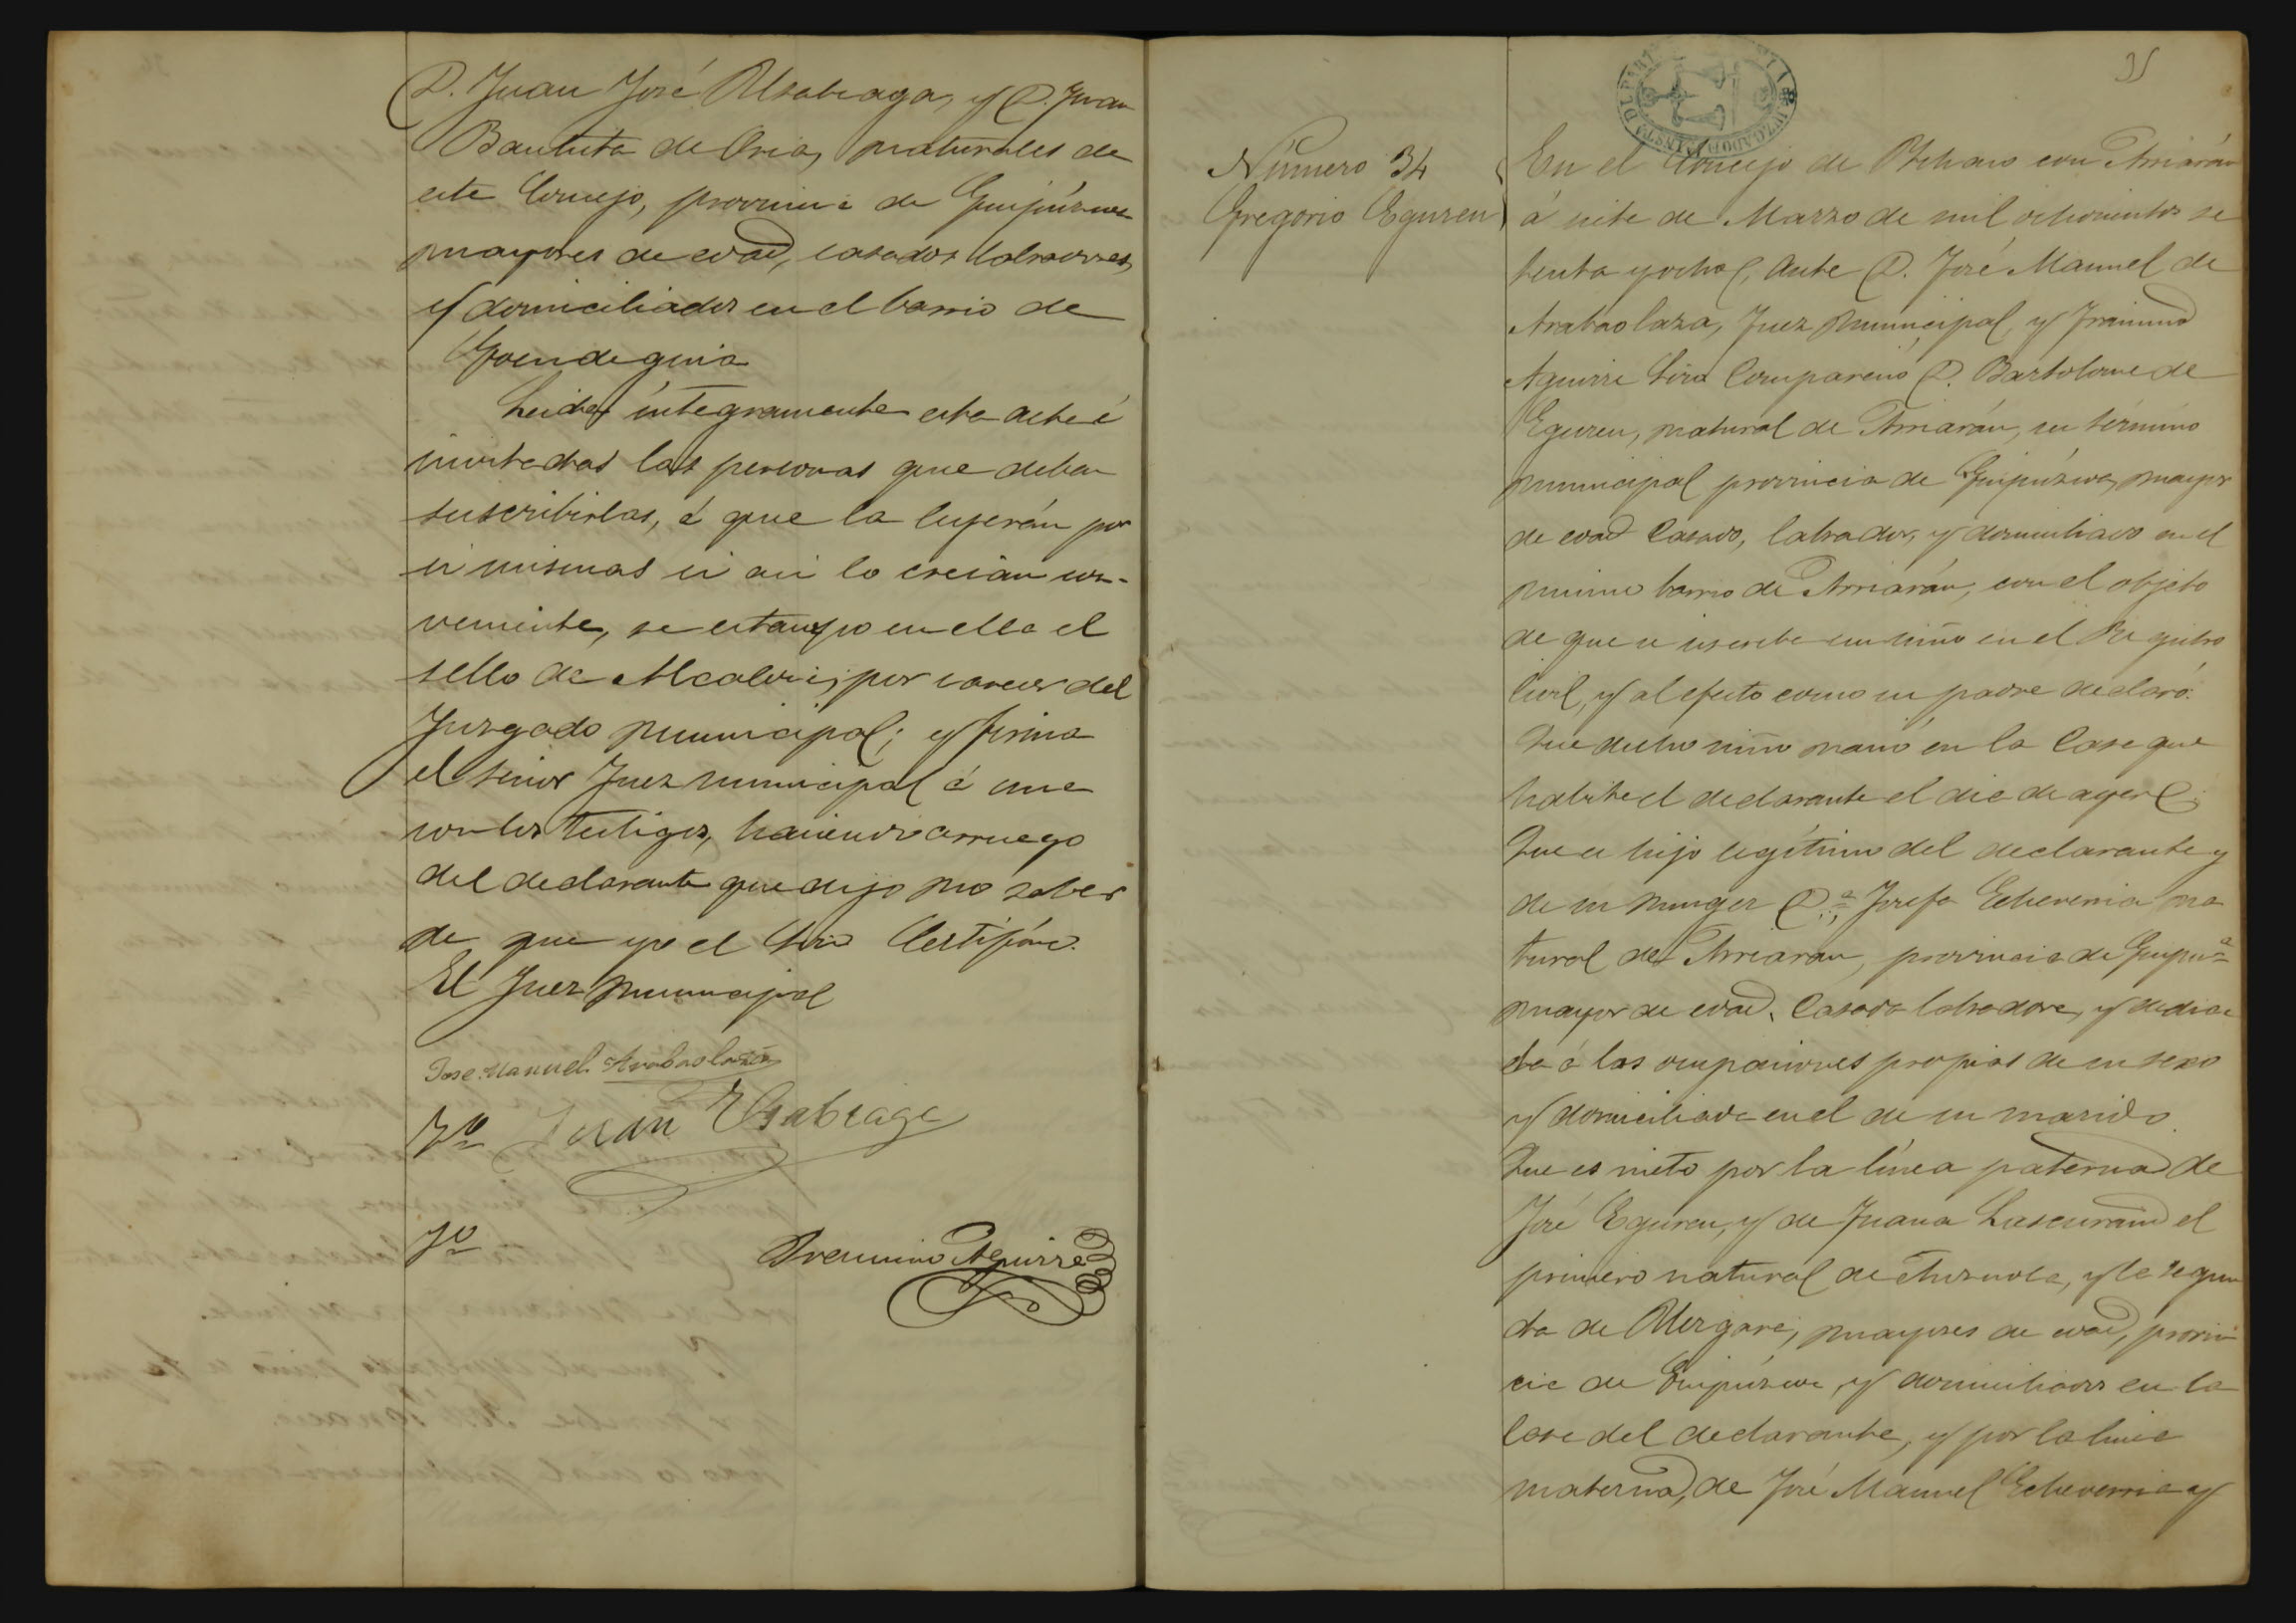 D. Juan José Alsabeaga, y D. Juan
Bautista de Oria, naturales de
este Concejo, provincia de Guipúzcoa
mayores de edad, casados labradores,
y domiciliados en el barrio de
Goendeguia
Leida íntegramente esta acta é
invitadas las personas que deben
suscribirlas, á que la leyerán por
si mismas si asi lo creian con-
veniente, se estampo en ella el
sello de Alcaldia, por carecer del
Juzgado municipal; y firma
el señor Juez municipal á una
con los testigos, haciendo a rruego
del declarante que dijo no saber
de que yo el Srio Certifico.
El Juez municipal
Jose Manuel Arabaolaza
Juan Alsabeaga
Fraimino Aguirre
35
Número 34
Gregorio Eguren
En el Concejo de Ichaso con Arriarán
á siete de Marzo de mil ochocientos se
tenta y ocho, ante D. José Manuel de
Arabaolaza, Juez municipal, y
Aguirre Srio Compareció D. Bartolome de
Eguren, natural de Arriarán, su término
municipal provincia de Guipúzcoa, mayor
de edad casado, labrador, y domiciliado en el
mismo barrio de Arriarán, con el objeto
de que se inscriba un niño en el Registro
Civil, y al efecto como su padre declaró:
Que dicho niño nació en la Casa que
habita el declarante el dia de ayer
Que es hijo legítimo del declarante y
de su munger D.ª Josefa Echeverria na
tural de Arriaran, provincia de Guipu.ª
mayor de edad, Casada labradora, y dedica
da á las ocupaciones propias de su sexo
y domiciliada en el de su marido.
Que es nieto por la línea paterna de
José Eguren, y de Juana Lascurain el
primero natural de Anzuola, y la segun
da de Vergara, mayores de edad, provin
cia de Guipúzcoa, y domiciliados en la
Casa del declarante, y por la linea
materna, de José Manuel Echeverria y